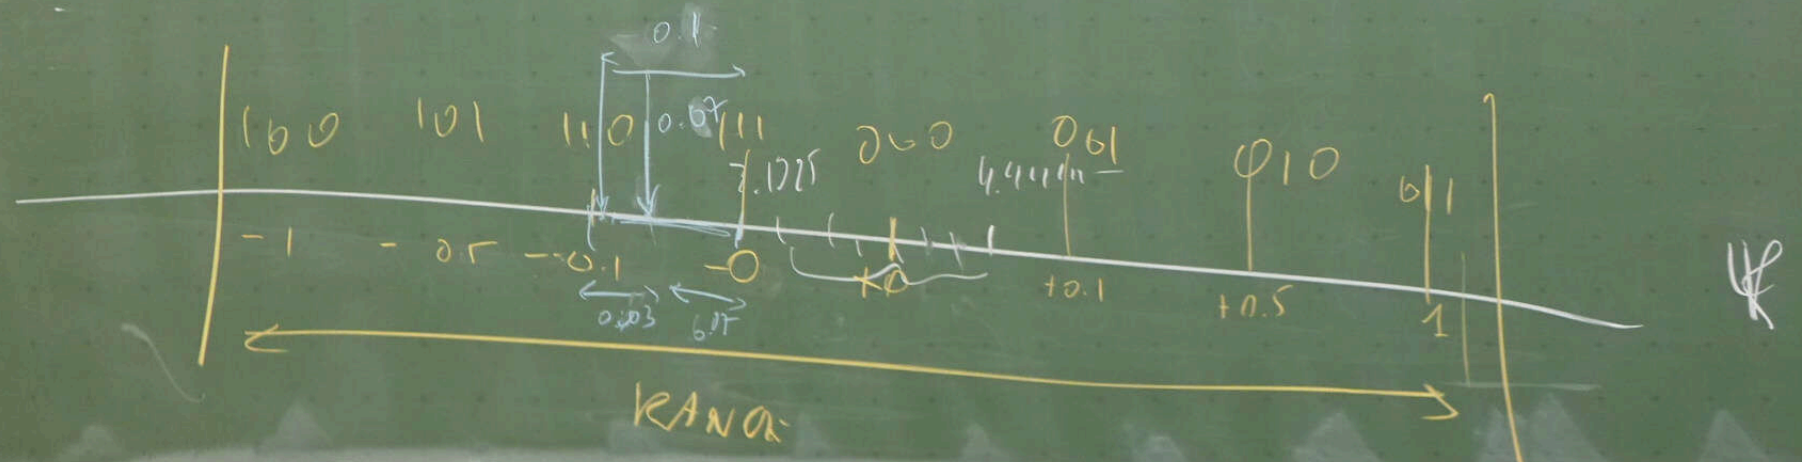 0.1
100 101 110 0.07 111 000 001 010 011
3.1225
-1 -0.5 -0.1 -0 +0 +0.1 +0.5 1
0.03 0.07
RANGE